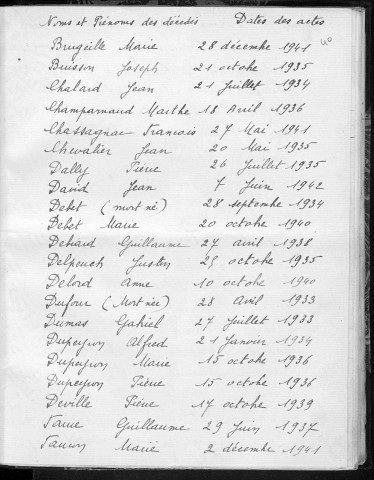 Noms et Prénoms des décédés Dates des actes
40
Brugeille Marie 28 décembre 1941
Buisson Joseph 21 octobre 1935
Chalard Jean 21 Juillet 1934
Champarnaud Marthe 18 Avril 1936
Chassagnac Francois 27 Mai 1941
Chevalier Jean 20 Mai 1935
Dally Pierre 26 Juillet 1935
David Jean 7 Juin 1942
Debet (mort né) 28 septembre 1934
Debet Marie 20 octobre 1940
Debiard Guillaume 27 avril 1938
Delpeuch Justin 25 octobre 1935
Delord Anne 10 octobre 1940
Dufour (Mort-né) 28 Avril 1933
Dumas Gabriel 27 Juillet 1933
Dupeyron Alfred 21 janvier 1934
Dupeyron Marie 15 octobre 1936
Dupeyron Pierre 15 octobre 1936
Deville Pierre 17 octobre 1939
Guillaume 29 Juin 1937
Marie 2 décembre 1941